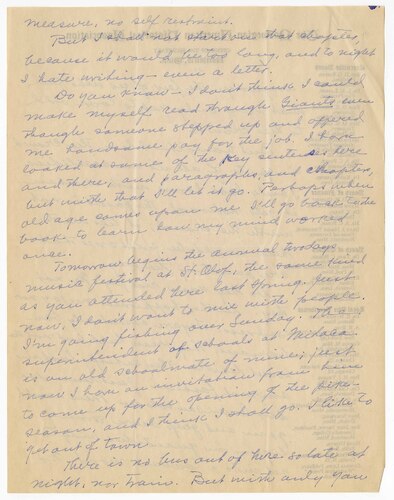 measure, no self restraint.
But I shall not start on that chapter,
because it would be too long, and to-night
I hate writing - even a letter.
Do you know - I don't think I could
make myself read through Giants even
though someone stepped up and offered
me handsome pay for the job. I have
looked at some of the key sentences here
and there, and paragraphs, and chapters,
but with that I'll let it go. Perhaps when
old age comes upon me I'll go back to the
book to learn how my mind worked
once.
Tomorrow begins the annual two days
music festival at St. Olaf, the same kind
as you attended here last spring. Just
now, I don't want to mix with people.
I'm going fishing over Sunday. The
superintendent of schools at Milaca
is an old schoolmate of mine; just
now I have an invitation from him
to come up for the opening of the pike-
season, and I think I shall go. I like to
get out of town.
There is no bus out of here so late at
night, nor train. But with only you